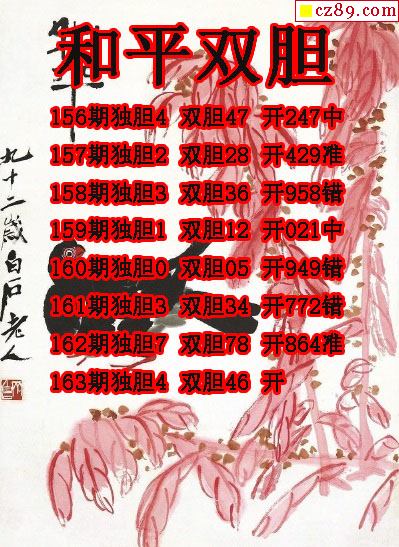 cz89.com
和平双胆
156期独胆4 双胆47 开247中
157期独胆2 双胆28 开429准
158期独胆3 双胆36 开958错
159期独胆1 双胆12 开021中
160期独胆0 双胆05 开949错
161期独胆3 双胆34 开772错
162期独胆7 双胆78 开864准
163期独胆4 双胆46 开
九十二岁白石老人